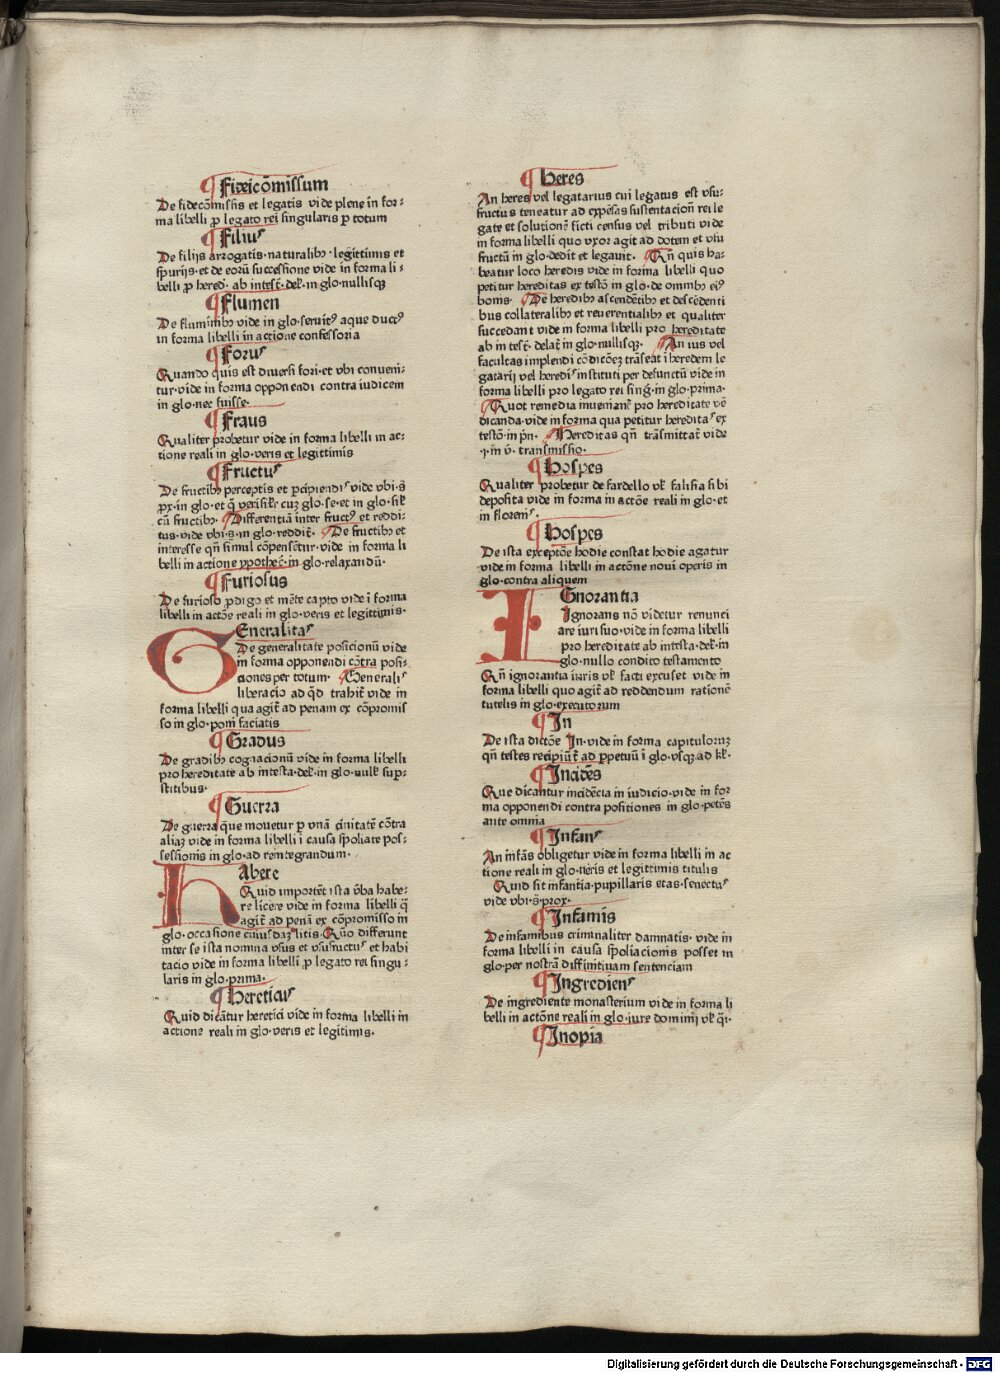 ¶ Fideicōmissum
De fideicōmissis et legatis vide plene in for⸗
ma libelli ꝓ legato rei singularis ꝑ totum
¶ Filiꝰ
De filijs arrogatis·naturalibꝫ·legittimis et
spurijs·et de eorū successione vide in forma li⸗
belli ꝓ hered· ab intest̄· del̄·in glo·nullisqꝫ
¶ Flumen
De fluminibꝫ vide in glo·seruitꝰ aque ductꝰ
in forma libelli in actione confessoria
¶ Forꝰ
Quando quis est diuersi fori·et vbi conueni⸗
tur·vide in forma opponendi contra iudicem
in glo·nec fuisse·
¶ Fraus
Qualiter probetur vide in forma libelli in ac⸗
tione reali in glo·veris et legittimis
¶ Fructꝰ
De fructibꝫ perceptis et ꝑcipiendis vide vbi·s̄
ꝓx·in glo·et cuꝫ glo·se·et in glo·
cū fructibꝫ· ¶ Differentiā inter fructꝰ et reddi⸗
tus·vide vbi·s·in glo·reddit̄· ¶ De fructibꝫ et
interesse qn̄ simul cōpensētur·vide in forma li
belli in actione ypothec̄·in glo·relaxandū·
¶ Furiosus
De furioso ꝓdigo et mēte capto vide ī forma
libelli in actōne reali in glo·veris et legittimis·
GEneralitas
De generalitate posicionū vide
in forma opponendi cōtra posi⸗
ciones per totum· ¶ Generalis
liberacio ad qd̄ trahit̄ vide in
forma libelli qua agit̄ ad penam ex cōpromis
so in glo·pom̄ faciatis
¶ Gradus
De gradibꝫ cognacionū vide in forma libelli
pro hereditate ab intesta·del̄·in glo· sup⸗
stitibus·
¶ Guerra
De guerra que mouetur ꝑ vnā ciuitatē cōtra
aliaꝫ vide in forma libelli ī causa spoliate pos⸗
sessionis in glo·ad reintegrandum·
HAbere
Quid importēt ista ꝟba habe⸗
re licere vide in forma libelli q̄
agit̄ ad penā ex cōpromisso in
glo·occasione cuiusdaꝫ litis·Quō differunt
inter se ista nomina vsus et vsusfructꝰ et habi
tacio vide in forma libelli ꝓ legato rei singu⸗
laris in glo·prima·
¶ Hereticꝰ
Quid dicātur heretici vide in forma libelli in
actione reali in glo·veris et legitimis·
¶ Heres
An heres vel legatarius cui legatus est vsu⸗
fructus teneatur ad expēsas sustentacioni rei le
gate et solutionē ficti census vel tributi vide
in forma libelli quo vxor agit ad dotem et vsū
fructū in glo·dedit et legauit· ¶ Qn̄ quis ha⸗
beatur loco heredis vide in forma libelli quo
petitur hereditas ex testō in glo·de omnibꝫ eiꝰ
bonis· ¶ De heredibꝫ ascendētibꝫ et descēdenti
bus collateralibꝫ et reuerentialibꝫ et qualiter
succedant vide in forma libelli pro hereditate
ab in test̄· delat̄ in glo·nullisqꝫ· ¶ An ius vel
facultas implendi cōdicōeꝫ trāseat ī heredem le
gatarij vel heredis instituti per defunctū vide in
forma libelli pro legato rei sinḡ·in glo·prima·
¶ Quot remedia inueniant̄ pro hereditate vē
dicanda·vide in forma qua petitur hereditas ex
testō·in pn̄· ¶ Hereditas qn̄ trāsmittat̄ vide
·j·in ꝟ· transmissio·
¶ Hospes
Qualiter probetur de fardello vl̄ salisia sibi
deposita vide in forma in actōe reali in glo·et
in floreni·
¶ Hospes
De ista exceptōne hodie constat hodie agatur
vide in forma libelli in actōne noui operis in
glo·contra aliquem
IGnorantia
Ignorans nō videtur renunci
are iuri suo·vide in forma libelli
pro hereditate ab intesta·del̄·in
glo·nullo condito testamento
Qn̄ ignorantia iuris vl̄ facti excuset vide in
forma libelli quo agit̄ ad reddendum rationē
tutelis in glo·executorum
¶ In
De ista dictōe In·vide in forma capituloruꝫ
qn̄ testes recipiūt̄ ad ꝑpetuū ī glo·vsqꝫ·ad kl̄·
¶ Incidēs
Que dicantur incidēcia in iudicio·vide in for
ma opponendi contra positiones in glo·petēs
ante omnia
¶ Infans
An infās obligetur vide in forma libelli in ac
tione reali in glo·veris et legittimis titulis
Quid sit infantia·pupillaris etas·senectus
vide vbi·s̄·prox·
¶ Infamis
De infamibus criminaliter damnatis· vide in
forma libelli in causa spoliacionis posset in
glo·per nostrā diffinitiuam sentenciam
¶ Ingrediens
De ingrediente monasterium vide in forma li
belli in actōne reali in glo·iure dominij vl̄ q̄i·
¶ Inopia
Digitalisierung gefördert durch die Deutsche Forschungsgemeinschaft - DFG